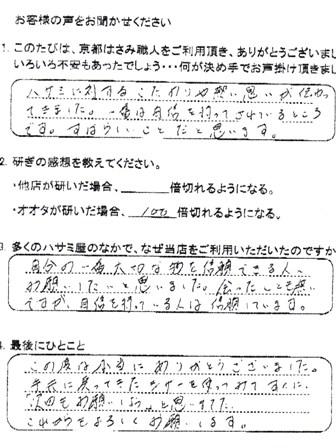 お客様の声をお聞かせください
1. このたびは、京都はさみ職人をご利用頂き、ありがとうございまし
いろいろ不安もあったでしょう・・・何が決め手でお声掛け頂きまし
ハサミに対するこだわりや熱い思いが伝わっ
てきました。一番は自信を持ってされているところ
です。すばらしいことだと思います。
2. 研ぎの感想を教えてください。
・他店が研いだ場合、______倍切れるようになる。
・オオタが研いだ場合、100倍切れるようになる。
3. 多くのハサミ屋のなかで、なぜ当店をご利用いただいたのですか
自分の一番大切な物を信頼できる人へ
お願いしたいと思いました。会ったことも無い
ですが、自信を持っている人は信頼しています。
4. 最後にひとこと
この度は本当にありがとうございました。
手元に戻ってきたシザーを使ってみてすぐに、
次回もお願いしようと思いました
これからもよろしくお願いします。